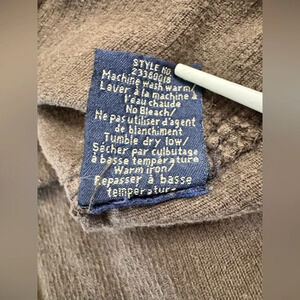 STYLE NO.
23380018
Machine wash warm/
Laver à la machine à
l'eau chaude
No Bleach/
Ne pas utiliser d'agent
de blanchiment
Tumble dry low/
Sécher par culbutage
à basse température
Warm iron/
Repasser à basse
température